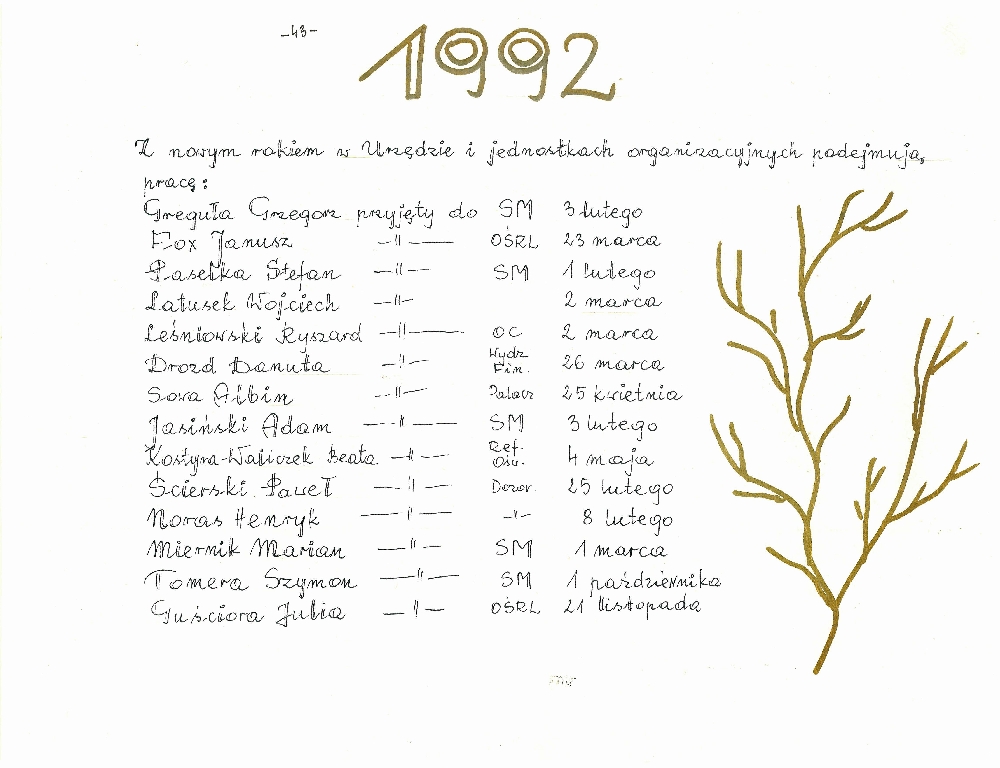 -43-
1992
Z nowym rokiem w Urzędzie i jednostkach organizacyjnych podejmują
pracę:
Greguła Grzegorz przyjęty do SM 3 lutego
Fox Janusz -"- OŚRL 23 marca
Pasetka Stefan -"- SM 1 lutego
Latusek Wojciech -"- 2 marca
Leśniowski Ryszard -"- OC 2 marca
Drozd Danuta -"- Wydz Fin. 26 marca
Sowa Albin -"- Pałacz 25 kwietnia
Jasiński Adam -"- SM 3 lutego
Kostyra-Waliczek Beata -"- Ref. Ośw. 4 maja
Ścierski Paweł -"- Dozor. 25 lutego
Noras Henryk -"- -"- 8 lutego
Miernik Marian -"- SM 1 marca
Tomera Szymon -"- SM 1 października
Guściora Julia -"- OŚRL 21 listopada